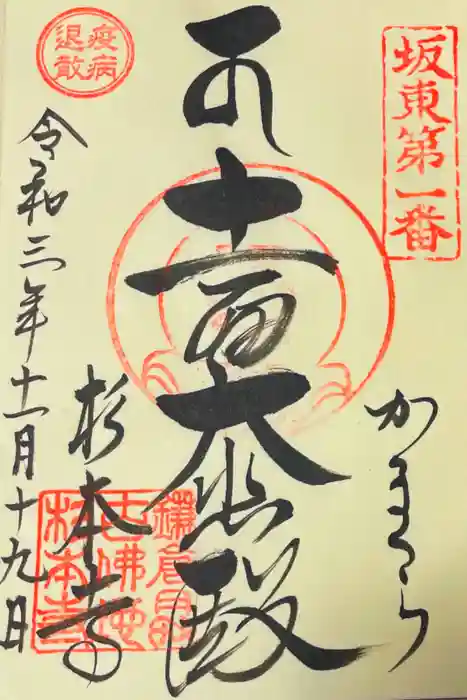 坂東第一番
かまくら
十一面大悲殿
鎌倉最
古佛地
杉本寺
杉本寺
疫病
退散
令和三年十一月十九日